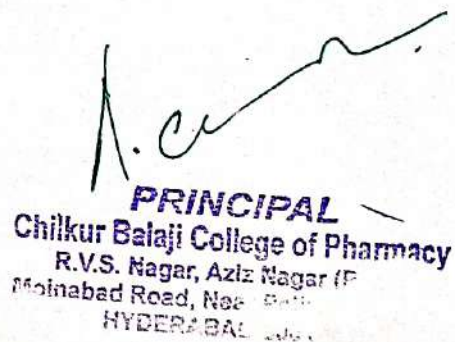 PRINCIPAL
Chilkur Balaji College of Pharmacy
R.V.S. Nagar, Aziz Nagar (P
Moinabad Road, Near
HYDERABAD